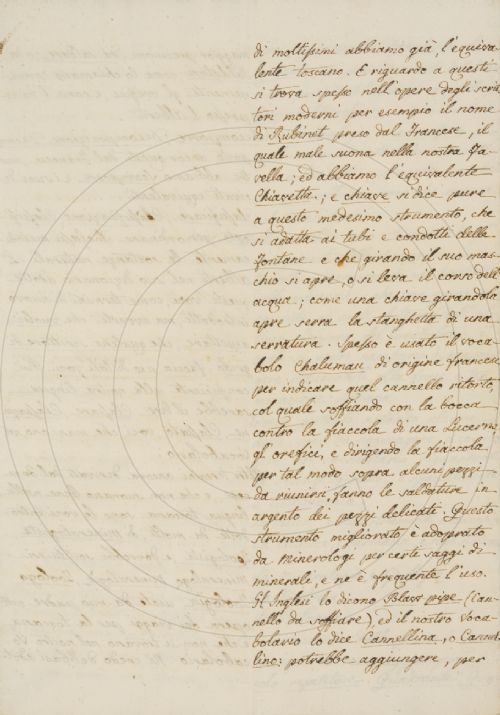 di moltissimi abbiamo già, l'equiva-
lente toscano. E riguardo a questi
si trova spesso nell'opere degli scrit-
tori moderni per esempio il nome
di Rubinet preso dal Francese, il
quale male suona nella nostra Fa-
vella; ed abbiamo l'equivalente
Chiavetta; e chiave si dice pure
a questo medesimo strumento, che
si adatta ai tubi e condotti delle
Fontane e che girando il suo mas-
chio si apre, o si leva il corso dell'
acqua; come una chiave girandola
apre serra la stanghetta di una
serratura. Spesso è usato il voca-
bolo Chalumau di origine francese
per indicare quel cannello ritorto,
col quale soffiando con la bocca
contro la fiaccola di una Lucerna
gl'orefici, e dirigendo la fiaccola
per tal modo sopra alcuni pezzi
da riunirsi, fanno le saldature in
argento dei pezzi delicati. Questo
strumento migliorato è adoprato
da Minerologi per certi saggi di
minerale, e ne è frequente l'uso.
Gl'Inglesi lo dicono Blass pipe (Can-
nello da soffiare), ed il nostro Voca-
bolario lo dice Cannellina, o Cannel-
lino: potrebbe aggiungere, per